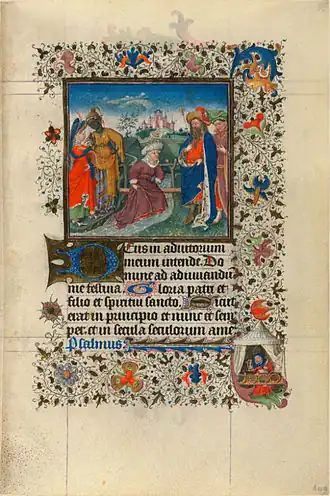 Deus in adiutorium
meum intende. Do
mine ad adiuuandū
me festina. Gloria patri et
filio et spiritui sancto. Sicut
erat in principio et nunc et semp
per. et in secula seculorum amē
Psalmus.